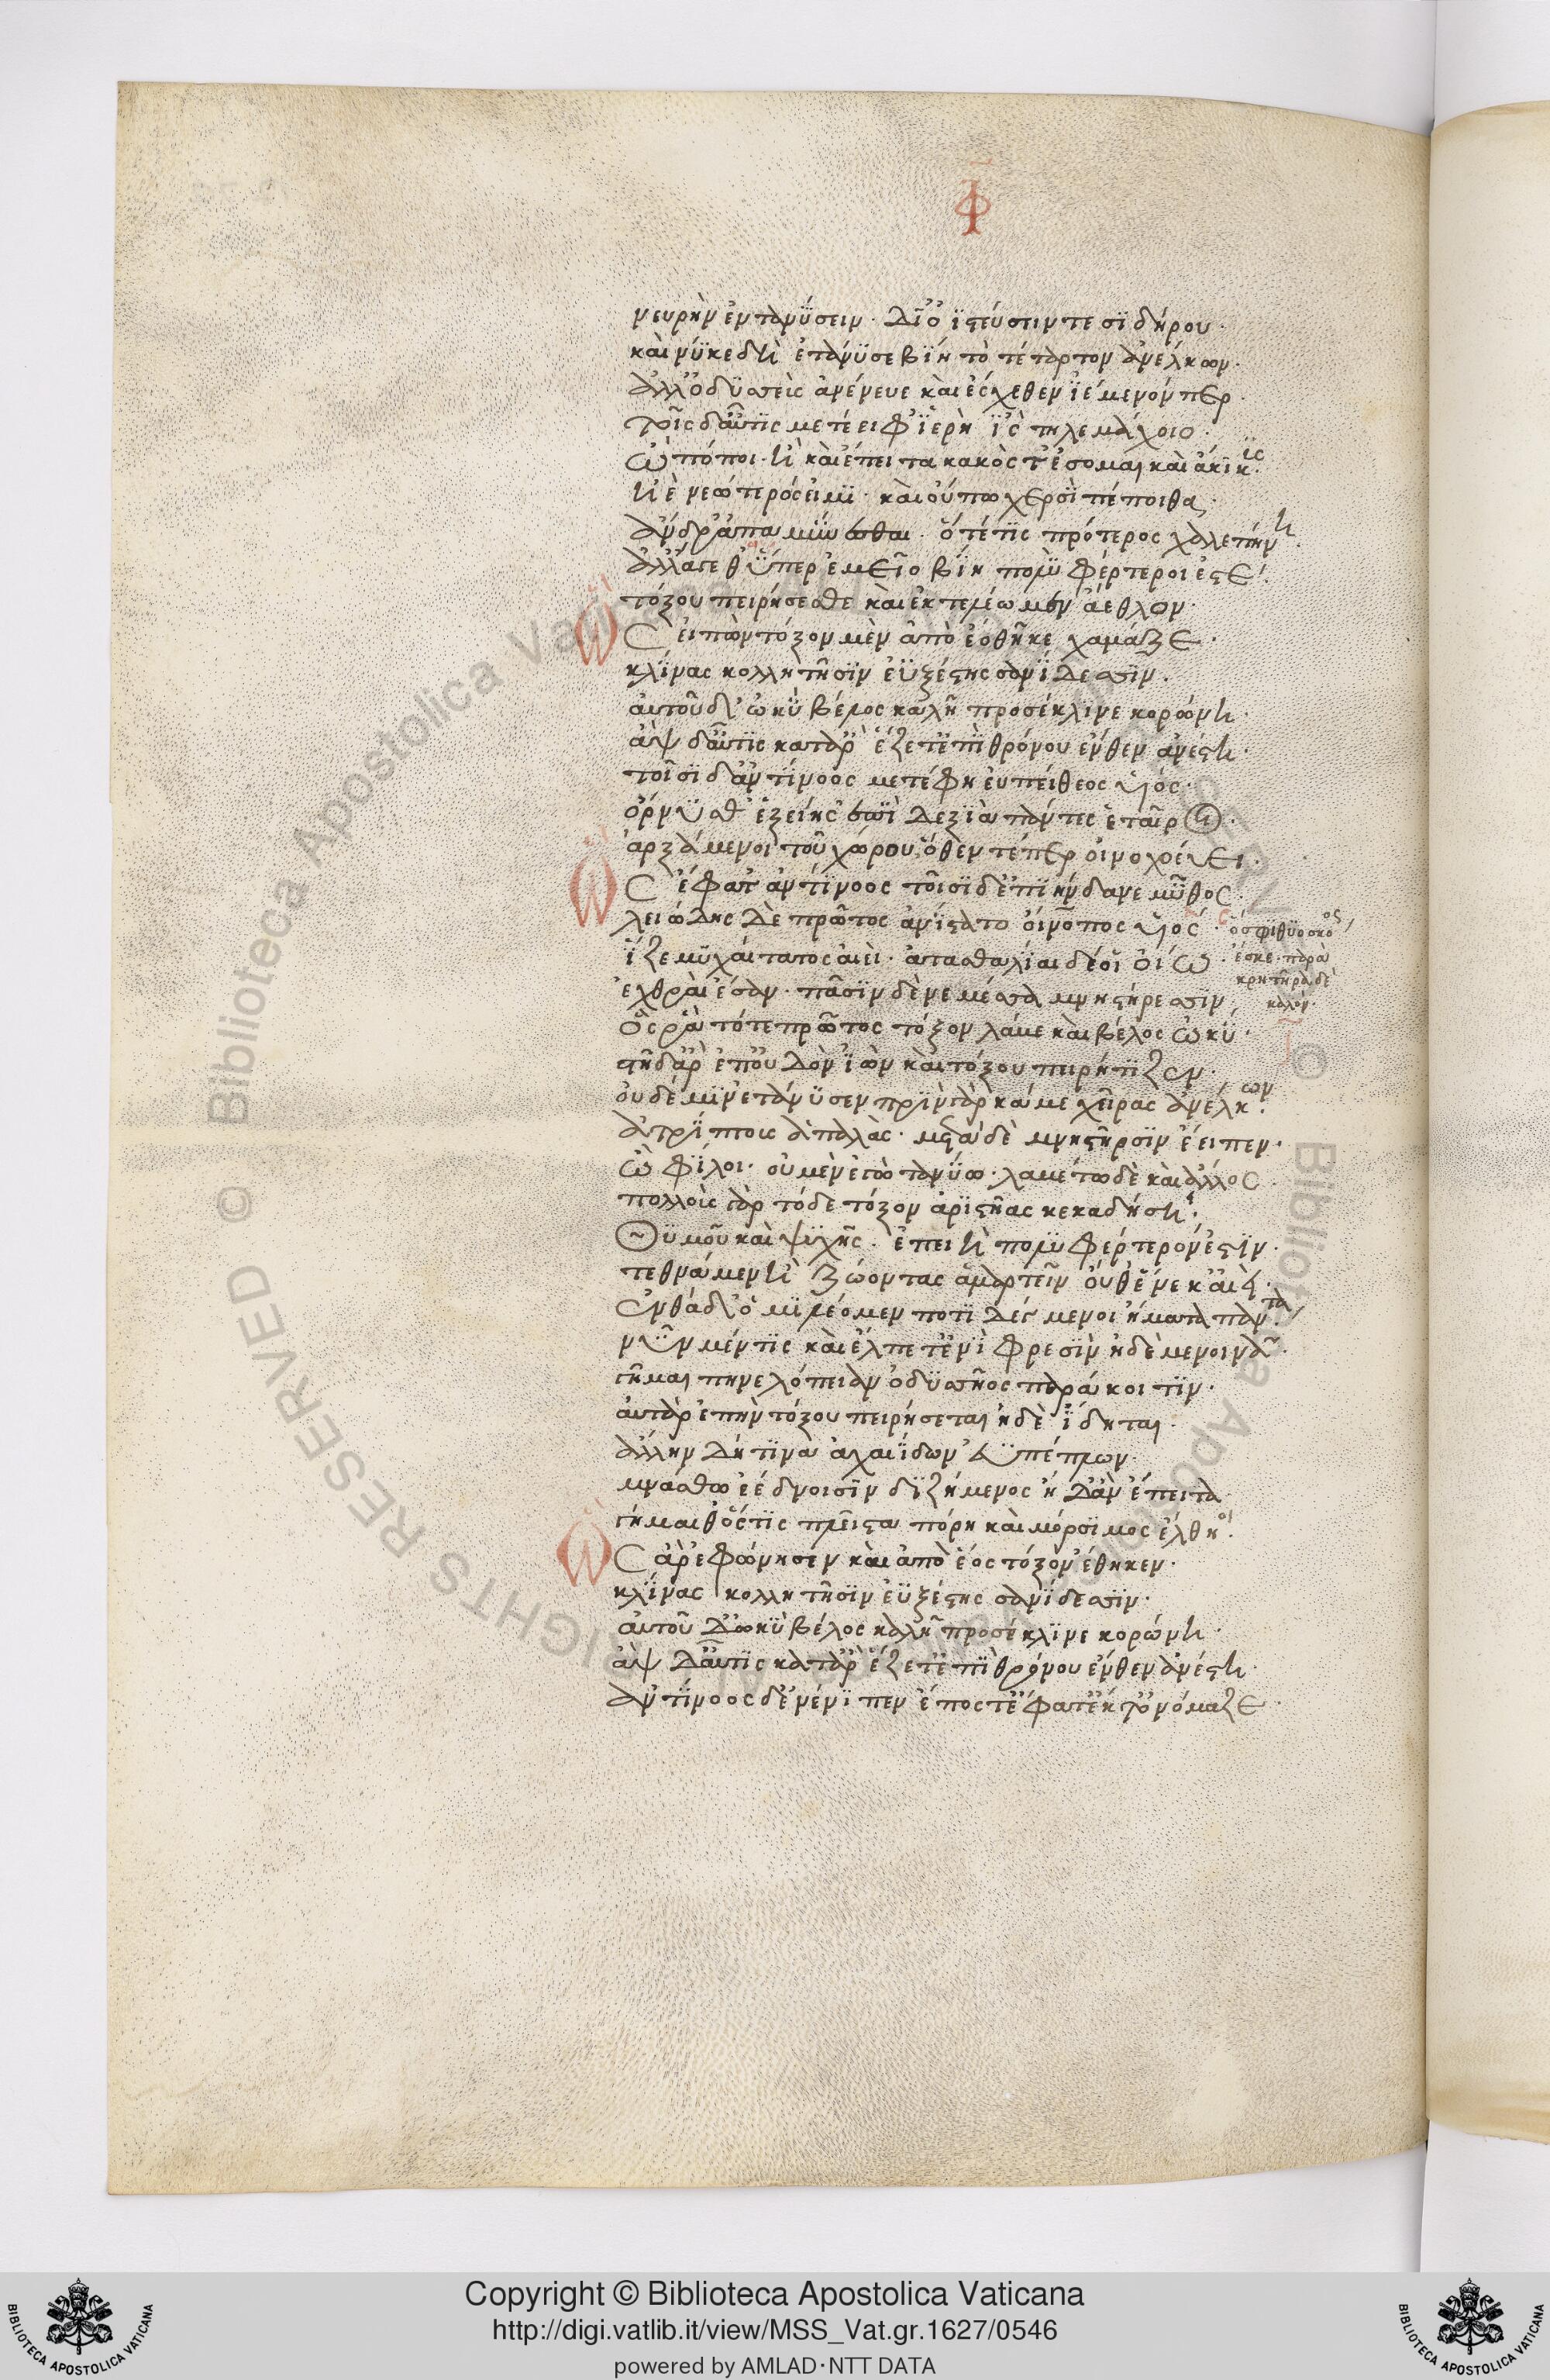 Φ
νευρὴν ἐντανΰσειν· διὀϊστεύσειν τε σϊδήρου·
καὶ νΰ κε δὴ ἐτάνϋσε βΐη τὸ τέταρτον ἀνέλκων·
ἀλλ' ὀδϋσσεὺς ἀνένευε καὶ ἔσχεθεν ϊέμενόν περ·
τοῖς δ' αὖτις μετέειφ' ϊερὴ ΐς τηλεμάχοιο·
ὢ πόποι· ἢ καὶ ἔπειτα κακός τ' ἔσομαι καὶ ἄκικυς·
ἠὲ νεώτερός εἰμϊ· καὶ οὔπω χερσὶ πέποιθα
ἄνδρ' ἀπαμύνασθαι· ὅτέ τις πρότερος χαλεπήνη·
ἀλλ' ἄγεθ' οἵπερ ἐμεῖο βίη πολὺ φέρτεροί ἐστε·
τόξου πειρήσεσθε καὶ ἐκτελέωμεν ἄεθλον·
Ὣς εἰπὼν τόξον μὲν ἀπὸ ἕο θῆκε χαμᾶζε·
κλΐνας κολλητῆσϊν ἐϋξέστης σανΐδεσσϊν·
αὐτοῦ δ' ὠκὺ βέλος καλῆ προσέκλινε κορώνη·
ἂψ δ' αὖτις κατ' ἂρ ἕζετ' ἐπὶ θρόνου ἔνθεν ἀνέστη·
τοῖσϊ δ' ἀντΐνοος μετέφη εὐπείθεος υἱός·
ὄρνυσθ' ἑξείης ἐπὶ δεξιὰ πάντες ἑταῖροι·
ἀρξάμενοι τοῦ χώρου ὅθεν τέ περ οἰνοχοεύει·
Ὣς ἔφατ' ἀντΐνοος τοῖσϊ δ' ἐπϊήνδανε μῦθος·
λειώδης δὲ πρῶτος ἀνΐστατο οἴνοπος υἱός· ὅ σφι θϋοσκόος
ἔσκε· παρὰ
κρητῆρα δὲ
καλὸν·
ἷζε μϋχαίτατος αἰεὶ· ἀτασθαλίαι δέ οἱ οἴω
ἐχθραὶ ἔσαν· πᾶσϊν δὲ νεμέσσα μνηστήρεσσϊν
ὅς ῥα τότε πρῶτος τόξον λάβε καὶ βέλος ὠκΰ·
στῆ δ' ἂρ ἐπ' οὐδὸν ἰὼν καὶ τόξου πειρήτϊζεν·
οὐδέ μϊν ἐτάνϋσεν πρὶν γὰρ κάμε χεῖρας ἀνέλκων·
ἀτρΐπτους ἁπαλὰς· μετὰ δὲ μνηστῆρσϊν ἔειπεν·
ὦ φΐλοι· οὐ μὲν ἐγὼ τανΰω· λαβέτω δὲ καὶ ἄλλος
πολλοὺς γὰρ τόδε τόξον ἀρϊστῆας κεκαδήσει·
Θϋμοῦ καὶ ψϋχῆς· ἐπειὴ πολὺ φέρτερόν ἐστϊν·
τεθνάμεν ἢ ζώοντας ἁμαρτεῖν οὗθ' ἕνεκ' αἰεὶ
ἐνθάδ' ὁμϊλέομεν ποτϊδέγμενοι ἤματα πάντα·
νῦν μέν τϊς καὶ ἔλπετ' ἐνὶ φρεσὶν ἠδὲ μενοινᾶ·
γῆμαι πηνελόπειαν ὀδϋσσῆος παράκοιτϊν·
αὐτὰρ ἐπὴν τόξου πειρήσεται ἠδὲ ΐδηται·
ἄλλην δή τϊνα ἀχαιΐδων εὐπέπλων·
μνάσθω ἐέδνοισϊν δϊζήμενος ἡ δ' ἂν ἔπειτα
γήμαιθ' ὅς τϊς πλεῖστα πόρη καὶ μόρσϊμος ἔλθοι·
Ὣς ἂρ ἐφώνησεν καὶ ἀπὸ ἕος τόξον ἔθηκεν·
κλΐνας κολλητῆσϊν ἐϋξέστης σανΐδεσσϊν·
αὐτοῦ δ' ὠκὺ βέλος καλῆ προσέκλϊνε κορώνη·
ἂψ δ' αὖτϊς κατ' ἂρ ἕζετ' ἐπὶ θρόνου ἔνθεν ἀνέστη·
ἀντΐνοος δ' ἐνένϊπεν ἔπος τ' ἔφατ' ἔκ τ' ὀνόμαζε·
© Biblioteca Apostolica Vaticana
ALL RIGHTS RESERVED
Copyright © Biblioteca Apostolica Vaticana
http://digi.vatlib.it/view/MSS_Vat.gr.1627/0546
powered by AMLAD·NTT DATA
BIBLIOTECA APOSTOLICA VATICANA
BIBLIOTECA APOSTOLICA VATICANA